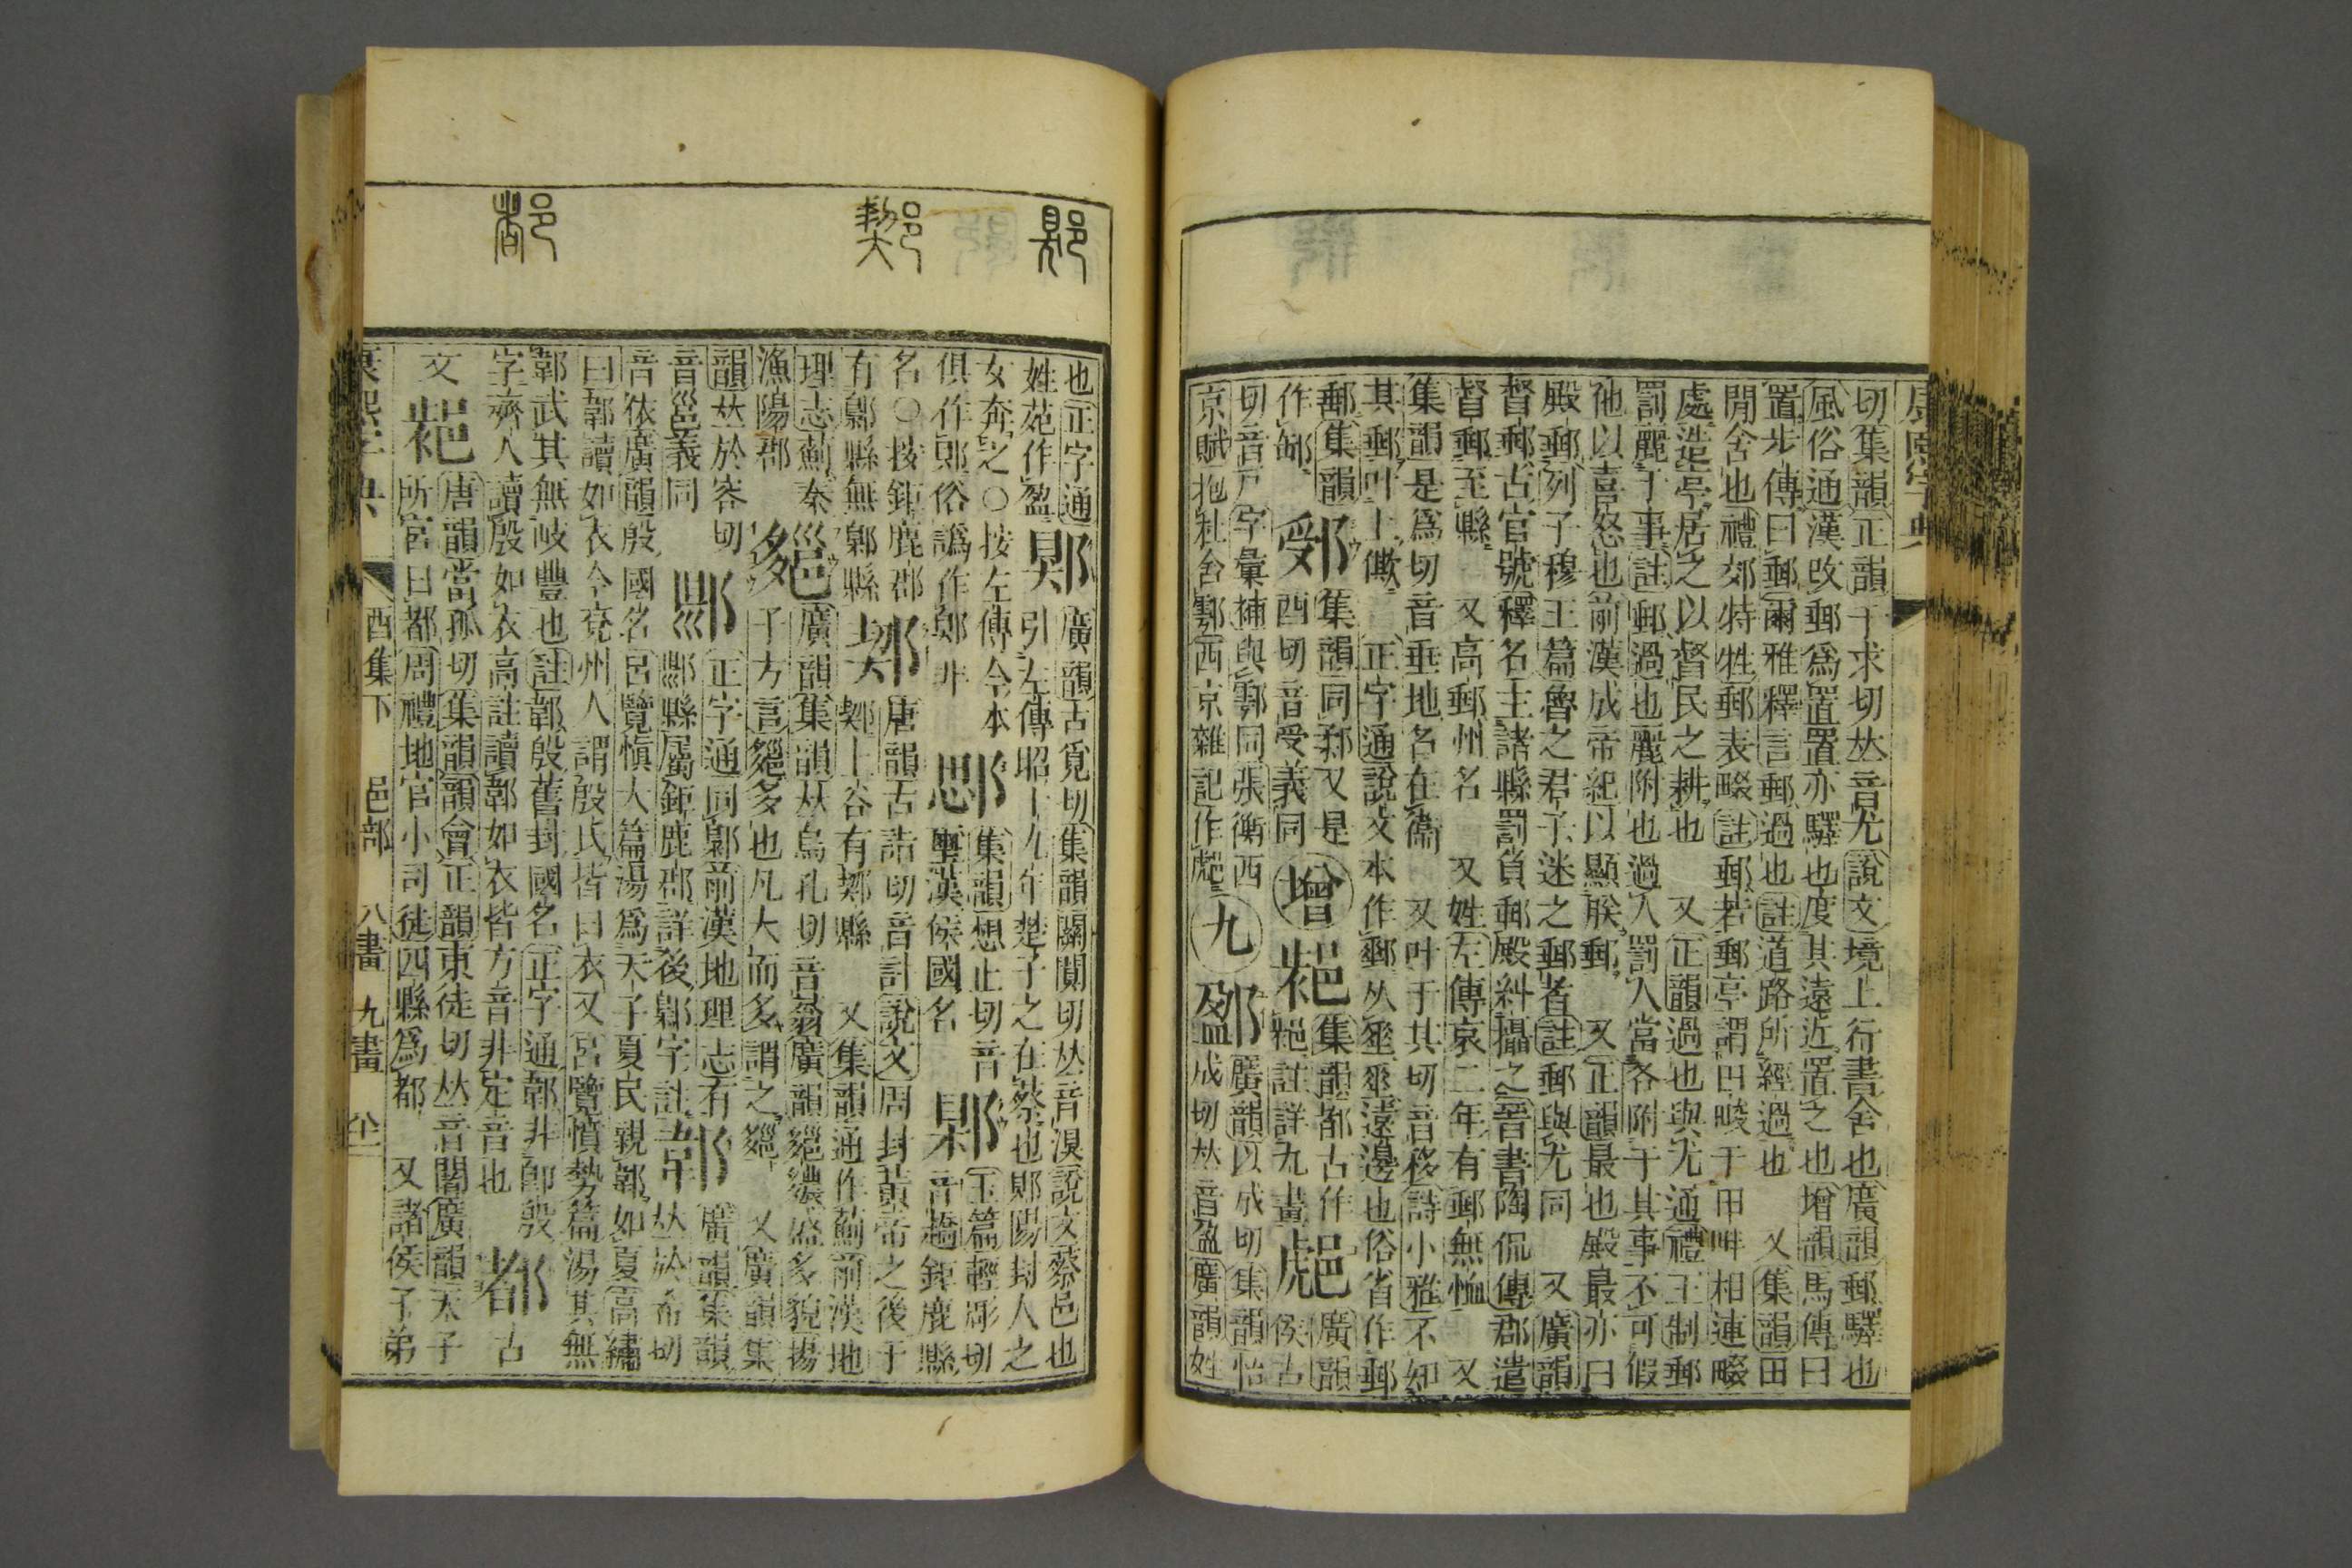 康熙字典
切集韻正韻于求切𠀤音尤說文境上行書舍也廣韻郵驛也
風俗通漢改郵爲置置亦驛也度其遠近置之也增韻馬傳曰
置步傳曰郵爾雅釋言郵過也註道路所經過也 又集韻田
閒舍也禮郊特牲郵表畷註郵若郵亭謂田畯于田畔相連畷
處造亭居之以督民之耕也 又正韻過也與尤通禮王制郵
罰麗于事註郵過也麗附也過人罰人當各附于其事不可假
他以喜怒也前漢成帝紀以顯朕郵 又正韻最也殿最亦曰
殿郵列子穆王篇魯之君子迷之郵者註郵與尤同 又廣韻
督郵古官號釋名主諸縣罰負郵殿糾攝之晉書陶侃傳郡遣
督郵至縣 又高郵州名 又姓左傳哀二年有郵無恤 又
集韻是爲切音垂地名在衞 又叶于其切音移詩小雅不知
其郵叶上僛 正字通說文本作郵从𨛬垂遠邊也俗省作郵
郵集韻 集韻同䣙又是 廣韻
作䣋 酉切音受義同 增 集韻都古作 註詳九畫 侯古
切音戸字彙補與鄠同張衡西 廣韻以成切集韻怡
京賦抱杜含鄠西京雜記作 九 成切𠀤音盈廣韻姓
也正字通 郹 廣韻古覓切集韻闃闃切𠀤音湨說文蔡邑也
姓苑作盈 引左傳昭十九年楚子之在蔡也郹陽封人之
女奔之〇按左傳今本 集韻想止切音 玉篇輕彫切
俱作郹俗譌作 非 璽漢侯國名 音趫鉅鹿縣
名〇按鉅鹿郡 唐韻古詣切音計說文周封黃帝之後于
有鄡縣無 縣 上谷有 縣 又集韻通作薊前漢地
理志薊秦 廣韻集韻𠀤烏孔切音蓊廣韻 䢉盛多貌揚
漁陽郡 子方言 多也凡大而多謂之 又廣韻集
韻𠀤於容切 正字通同鄡前漢地理志有 廣韻集韻
音邕義同 縣屬鉅鹿郡詳後鄡字註 郼 𠀤於希切
音依廣韻殷國名呂覽愼大篇湯爲天子夏民親郼如夏高繡
曰郼讀如衣今兗州人謂殷氏皆曰衣又呂覽愼勢篇湯其無
郼武其無岐豐也註郼殷舊封國名正字通郼非卽殷
字齊人讀殷如衣高註讀郼如衣皆方音非定音也 都 古
文 唐韻當孤切集韻韻會正韻東徒切𠀤音闍廣韻天子
所宮曰都周禮地官小司徒四縣爲都 又諸侯子弟
康熙字典 酉集下 邑部 八畫 九畫